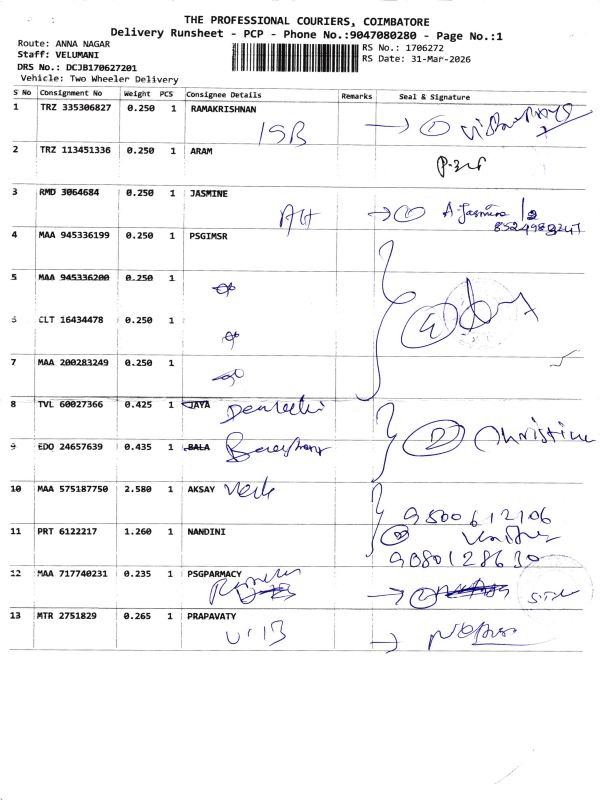 THE PROFESSIONAL COURIERS, COIMBATORE
Delivery Runsheet - PCP - Phone No.:9047080280 - Page No.:1
Route: ANNA NAGAR
Staff: VELUMANI
DRS No.: DCJB170627201
Vehicle: Two Wheeler Delivery
RS No.: 1706272
RS Date: 31-Mar-2026
S No Consignment No Weight PCS Consignee Details Remarks Seal & Signature
1 TRZ 335306827 0.250 1 RAMAKRISHNAN
ISB
2 TRZ 113451336 0.250 1 ARAM
3 RMD 3064684 0.250 1 JASMINE
AH A. Jasmine
8524989247
4 MAA 945336199 0.250 1 PSGIMSR
5 MAA 945336200 0.250 1
6 CLT 16434478 0.250 1
4
7 MAA 200283249 0.250 1
8 TVL 60027366 0.425 1 JAYA
2 Christine
9 EDO 24657639 0.435 1 BALA
10 MAA 575187750 2.580 1 AKSAY
9500612106
11 PRT 6122217 1.260 1 NANDINI
9080128630
12 MAA 717740231 0.235 1 PSGPARMACY
13 MTR 2751829 0.265 1 PRAPAVATY